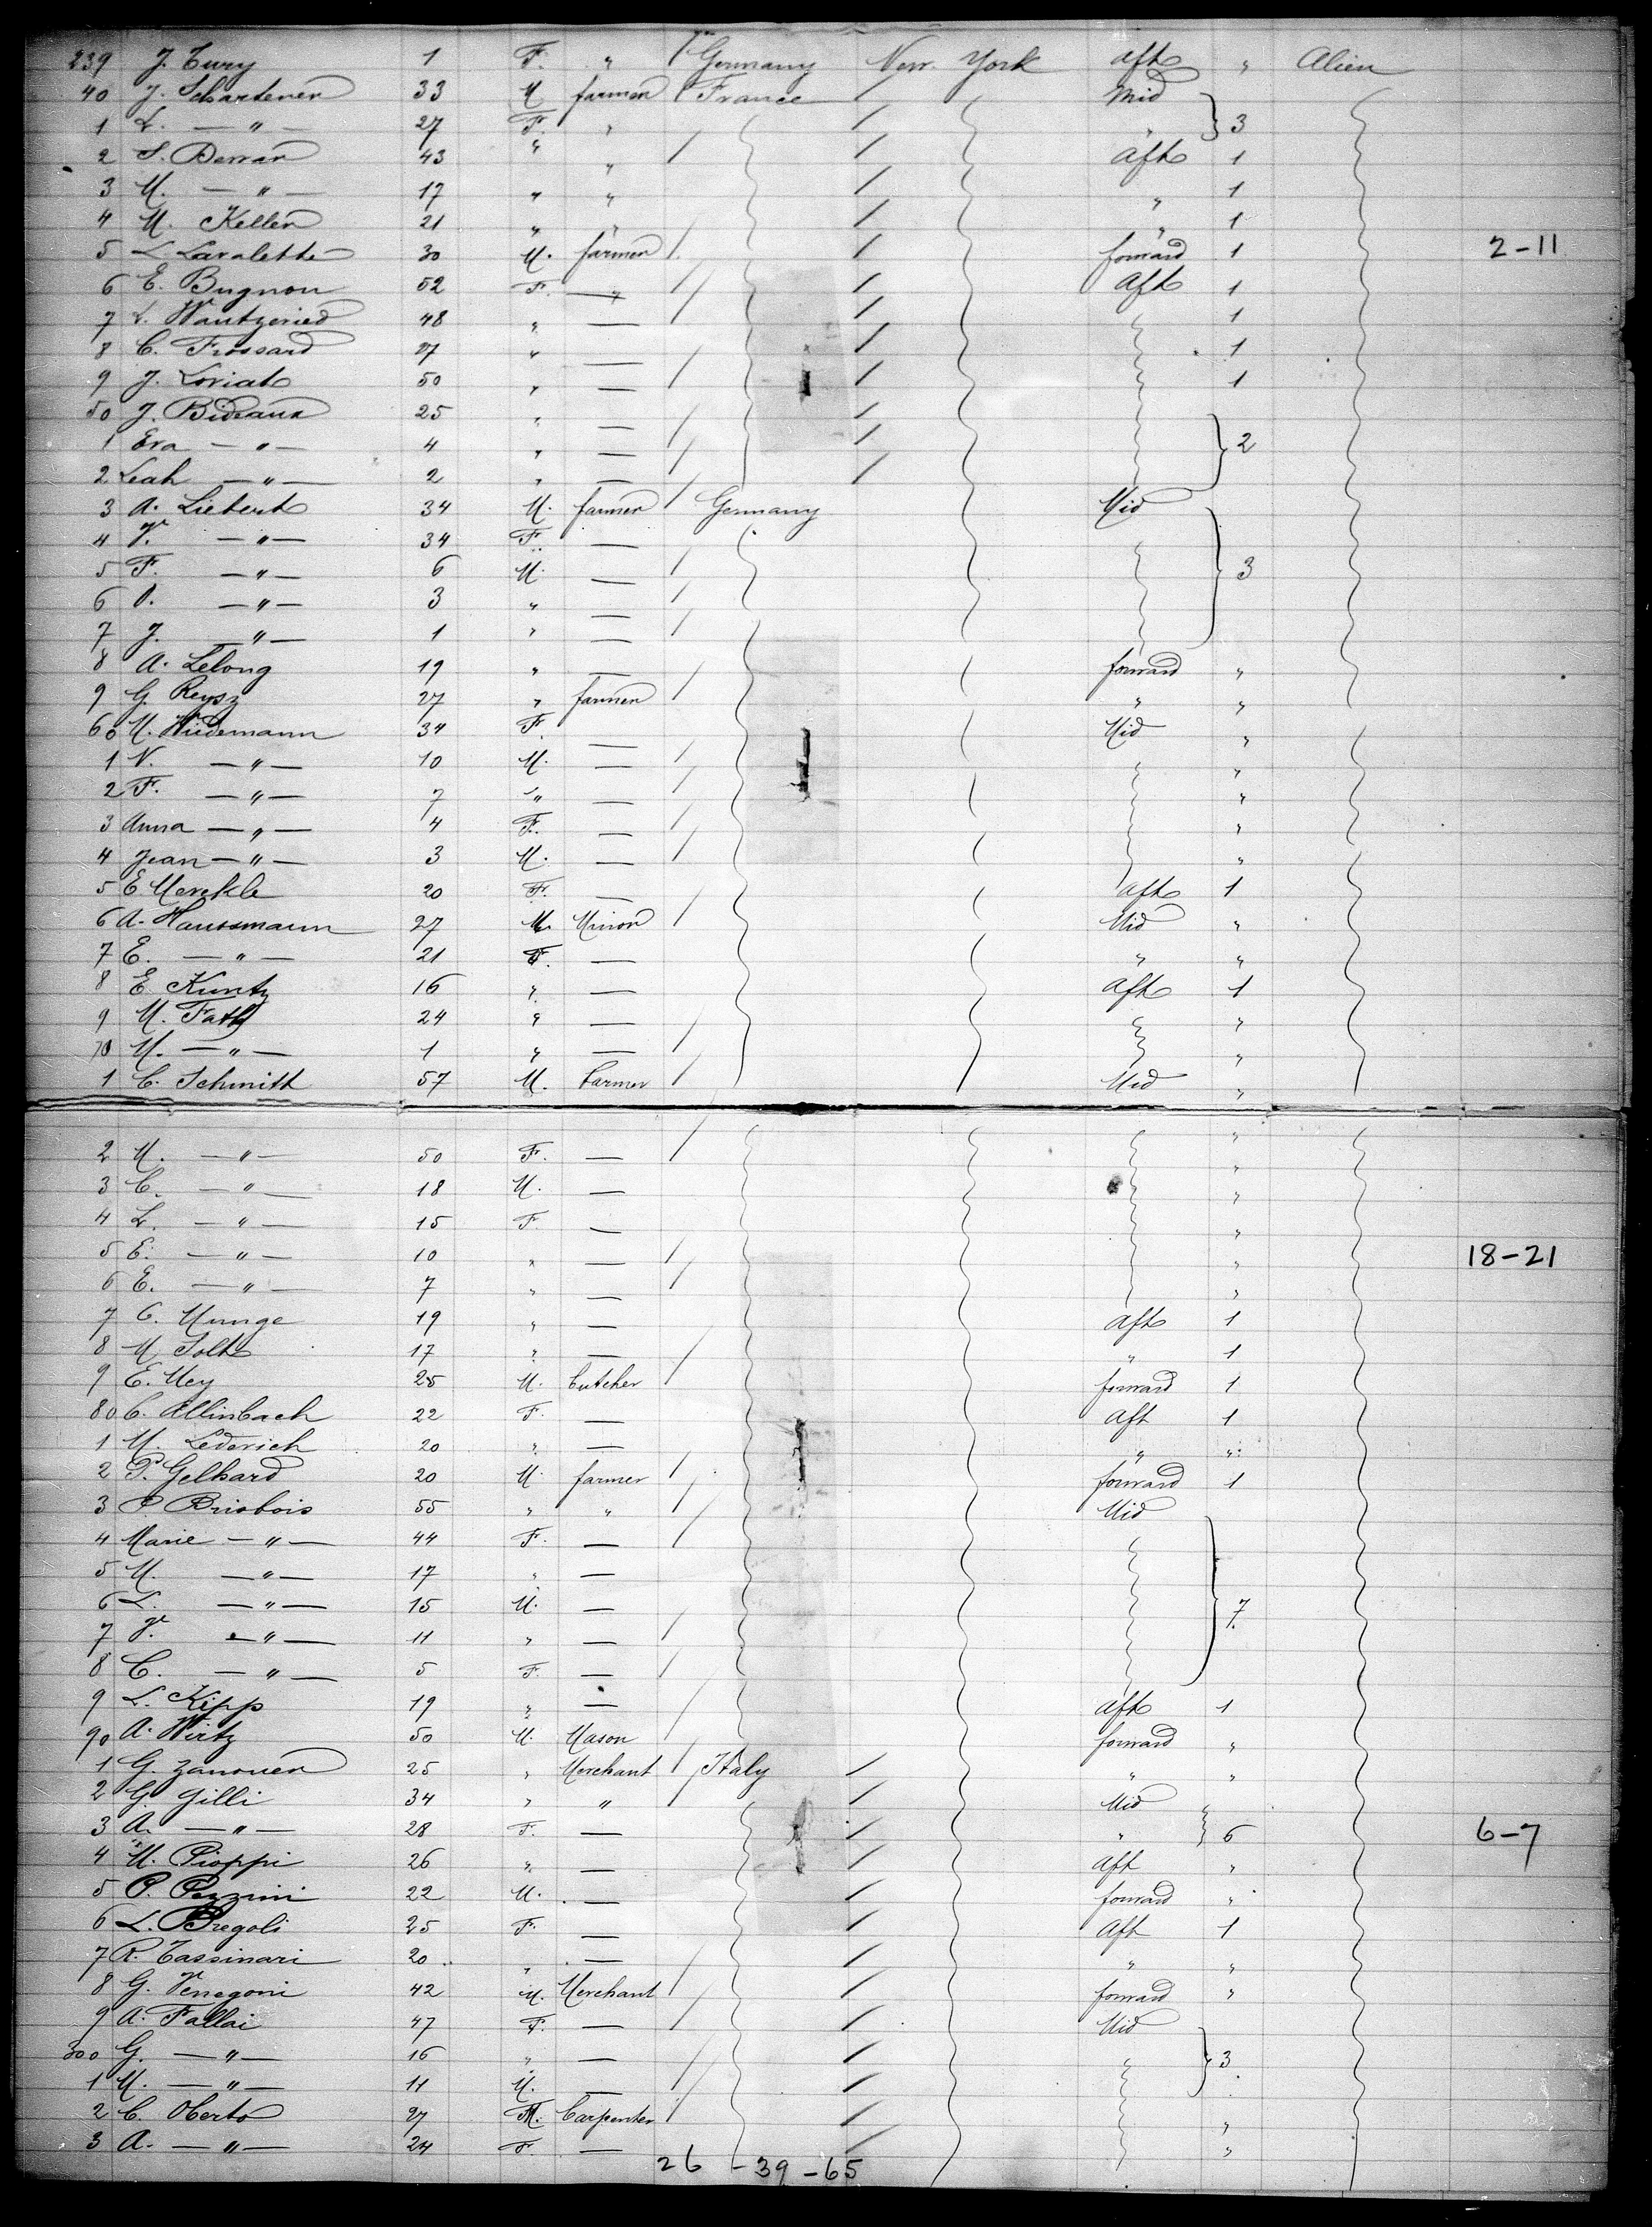 239 J. Tury 1 F. " Germany New York aft " Alien
40 J. Schartener 33 M farmer France / Mid
1 L. — " — 27 F. " / " } 3
2 S. Derran 43 " " / aft 1
3 M. — " — 17 " " / " 1
4 M. Keller 21 " " / " 1
5 L Lavalette 30 M. farmer / forward 1 2-11
6 E. Bugnon 52 F. — " / aft 1
7 L. Wantzeried 48 " — / 1
8 C. Frossard 27 " — / 1
9 J. Loriat 50 " — / 1
50 J. Bideaux 25 " — /
1 Eva — " — 4 " — / } 2
2 Leah — " — 2 " — /
3 A. Liebert 34 M. farmer Germany Mid
4 V. — " — 34 F. —
5 F. — " — 6 M. — } 3
6 — " — 3 " —
7 J. — " — 1 " —
8 A. Lelong 19 " — forward "
9 G. Reysz 27 " farmer " "
60 M. Widemann 34 F. — Mid "
1 N. — " — 10 M. — "
2 F. — " — 7 " — "
3 Anna — " — 4 F. — "
4 Jean — " — 3 M. — "
5 E. Merckle 20 F. — aft 1
6 A. Haussmann 27 M. Minor Mid "
7 E. — " — 21 F. — " "
8 E. Kuntz 16 " — aft 1
9 M. Fath 24 " — "
70 M. — " — 1 " — "
1 C. Schmitt 57 M. farmer Mid "
2 M. — " — 50 F. — "
3 C. — " — 18 M. — "
4 L. — " — 15 F. — "
5 E. — " — 10 " — " 18-21
6 E. — " — 7 " — "
7 C. Munge 19 " — aft 1
8 M Solt 17 " — " 1
9 E. Mey 25 M. butcher forward 1
80 C. Allinbach 22 F. — aft 1
1 M. Lederich 20 " — " "
2 P. Gelhard 20 M. farmer forward 1
3 P. Brisbois 55 " " Mid
4 Marie — " — 44 F. —
5 M. — " — 17 " —
6 L. — " — 15 M. — } 7
7 V. — " — 11 " —
8 C. — " — 5 F. —
9 L. Kipp 19 " — aft 1
90 A. Wirtz 50 M. Mason forward "
1 G. Zanoner 25 " Merchant Italy / " "
2 G. Gilli 34 " " / Mid
3 A. — " — 28 F. — / " } 6 6-7
4 M. Pioppi 26 " — / aft "
5 P. Pezzini 22 M. — / forward "
6 L. Bregoli 25 F. — / aft 1
7 R. Tassinari 20 " — / " "
8 G. Venegoni 42 M. Merchant / forward "
9 A. Fallai 47 F. — / Mid
300 G. — " — 16 " — / } 3
1 M. — " — 11 M. — /
2 C. Oberto 27 M. Carpenter / "
3 A. — " — 24 F. — / "
26 - 39 - 65